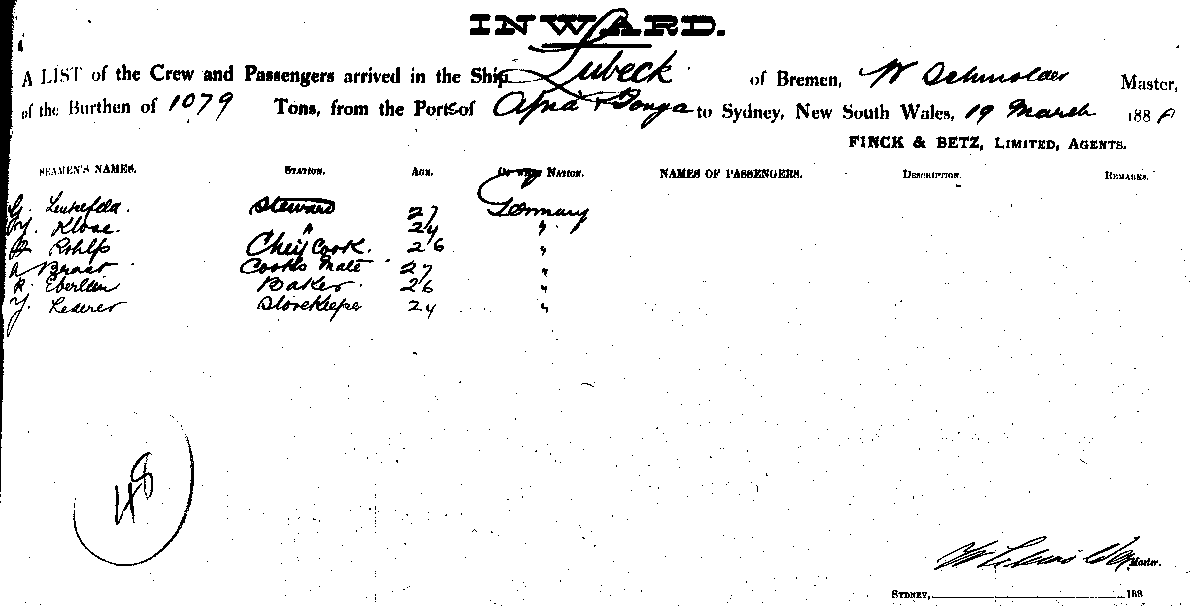 INWARD.
A LIST of the Crew and Passengers arrived in the Ship Lubeck of Bremen, W Schmolder Master,
of the Burthen of 1079 Tons, from the Ports of Apia & Tonga to Sydney, New South Wales, 19 March 188
FINCK & BETZ, LIMITED, AGENTS.
SEAMEN'S NAMES. STATION. AGE. OF WHAT NATION. NAMES OF PASSENGERS. DESCRIPTION. REMARKS.
G. Steward 27 Germany
Klose. " 24 "
Rohlfs Chief Cook. 26 "
Cooks Mate 27 "
R. Eberlein Baker. 26 "
Lederer Storekeeper 24 "
48
Master.
SYDNEY, 188